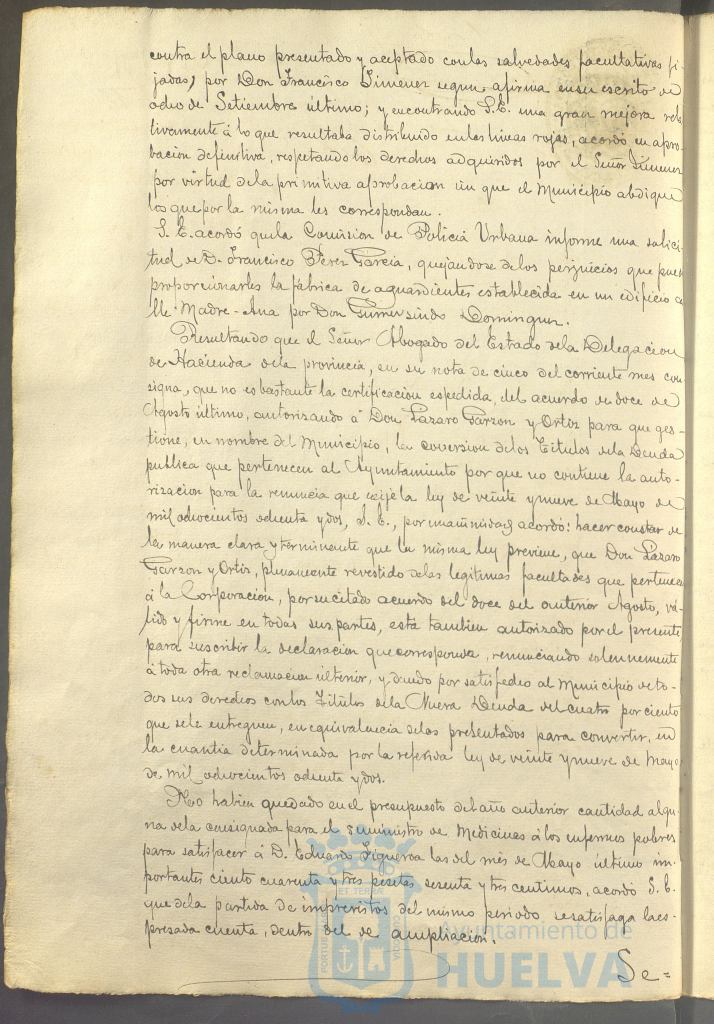 contra el plano presentado y aceptado con las salvedades facultativas fi-
jadas, por Don Francisco Jimenez segun afirma en su escrito de
ocho de Setiembre último; y encontrando S.E. una gran mejora rela
tivamente á lo que resultaba distribuido en las lineas rojas, acordó su apro-
bacion definitiva, respetando los derechos adquiridos por el Señor Jimenez
por virtud de la primitiva aprobacion sin que el Municipio abdique
los que por la misma les correspondan.
S. E. acordó que la Comision de Policía Urbana informe una solici
tud de D. Francisco Perez Garcia, quejandose de los perjuicios que puede
proporcionarles la fábrica de aguardientes establecida en un edificio ca
lle Madre-Ana por Don Gumersindo Dominguez.
Resultando que el Señor Abogado del Estado de la Delegacion
de Hacienda de la provincia, en su nota de cinco del corriente mes con
signa, que no es bastante la certificacion espedida, del acuerdo de doce de
Agosto último, autorizando á Don Lazaro Garzon y Ortiz para que ges-
tione, en nombre del Municipio, la coversion de los Titulos de la Deuda
publica que pertenecen al Ayuntamiento por que no contiene la auto-
rizacion para la renuncia que exije la ley de veinte y nueve de Mayo de
mil ochocientos ochenta y dos, S. E., por unanimidad, acordó: hacer constar de
la manera clara y terminante que la misma ley previene, que Don Lazaro
Garzon y Ortiz, plenamente revestido de las legitimas facultades que pertenecen
á la Corporacion, por su citado acuerdo del doce del anterior Agosto, vá-
lido y firme en todas sus partes, está tambien autorizado por el presente
para suscribir la declaracion que corresponda, renunciando solennemente
á toda otra reclamacion ulterior, y dando por satisfecho al Municipio de to-
dos sus derechos con los Titulos de la Nueva Deuda del cuatro por ciento
que se le entreguen, en equivalencia de los presentados para convertir, en
la cuantia determinada por la referida ley de veinte y nueve de Mayo
de mil ochocientos ochenta y dos.
No habien quedado en el presupuesto del año anterior cantidad algu-
na de la consignada para el suministro de Medicinas á los enfermos pobres
para satisfacer á D. Eduardo Figueroa las del mes de Mayo último im-
portantes ciento cuarenta y tres pesetas sesenta y tres centimos, acordó S. E.
que de la partida de imprevistos del mismo periodo, se satisfaga la es-
presada cuenta, dentro del de ampliacion.
Se=
Ayuntamiento de
HUELVA